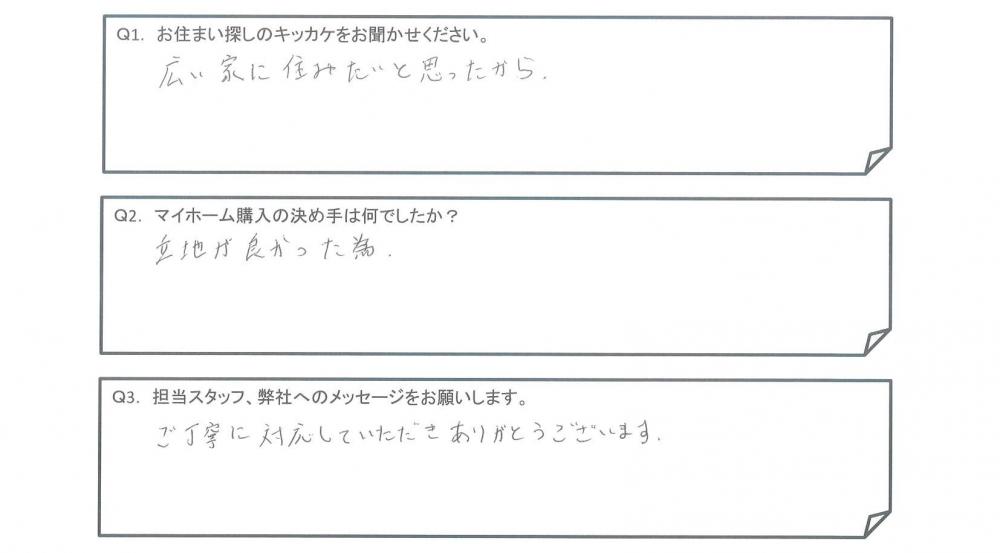 Q1. お住まい探しのキッカケをお聞かせください。
広い家に住みたいと思ったから.
Q2. マイホーム購入の決め手は何でしたか？
立地が良かった為.
Q3. 担当スタッフ、弊社へのメッセージをお願いします。
ご丁寧に対応していただきありがとうございます.